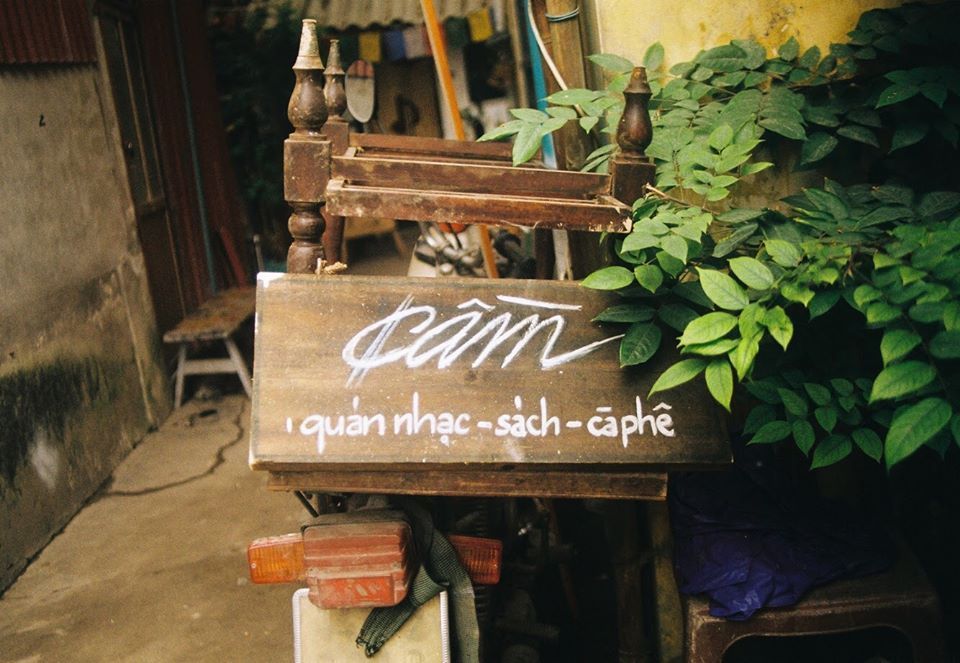 Cầm
quán nhạc - sách - cà phê